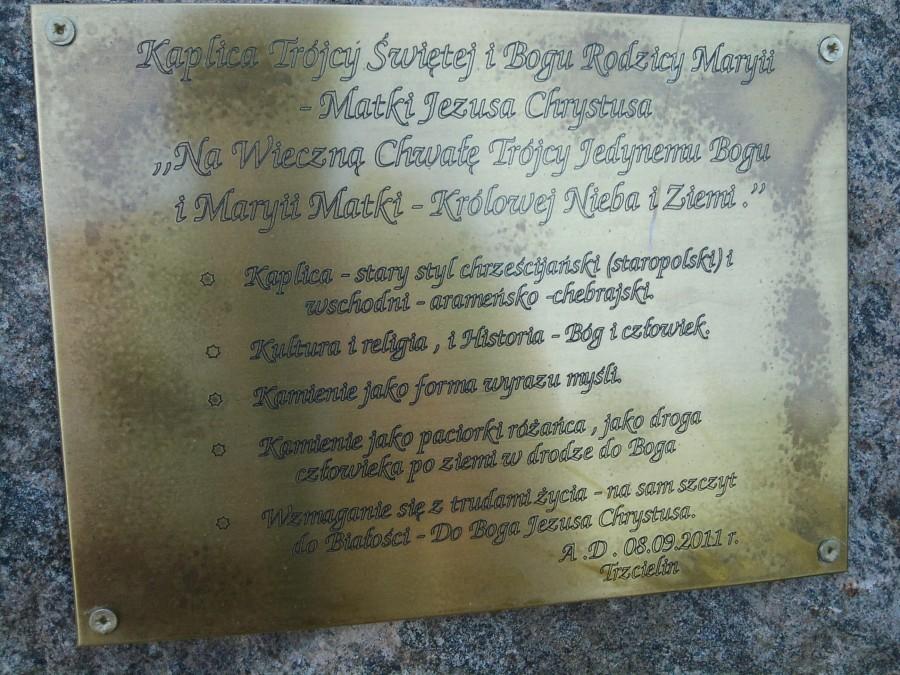 Kaplica Trójcy Świętej i Bogu Rodzicy Maryii
- Matki Jezusa Chrystusa
,,Na Wieczną Chwałę Trójcy Jedynemu Bogu
i Maryii Matki - Królowej Nieba i Ziemi .”
Kaplica - stary styl chrześcijański (staropolski) i
wschodni - arameńsko -chebrajski.
Kultura i religia , i Historia - Bóg i człowiek.
Kamienie jako forma wyrazu myśli.
Kamienie jako paciorki różańca , jako droga
człowieka po ziemi w drodze do Boga
Wzmaganie się z trudami życia - na sam szczyt
do Białości - Do Boga Jezusa Chrystusa.
A .D . 08.09.2011 r.
Trzcielin